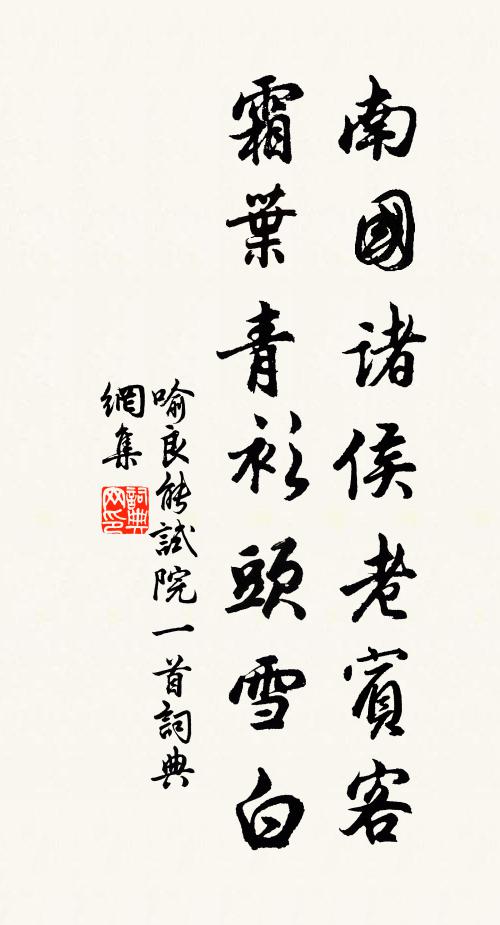 南國諸侯老賓客
霜葉青衫頭雪白
喻良能試院一首詞典
網集
詞典
网印